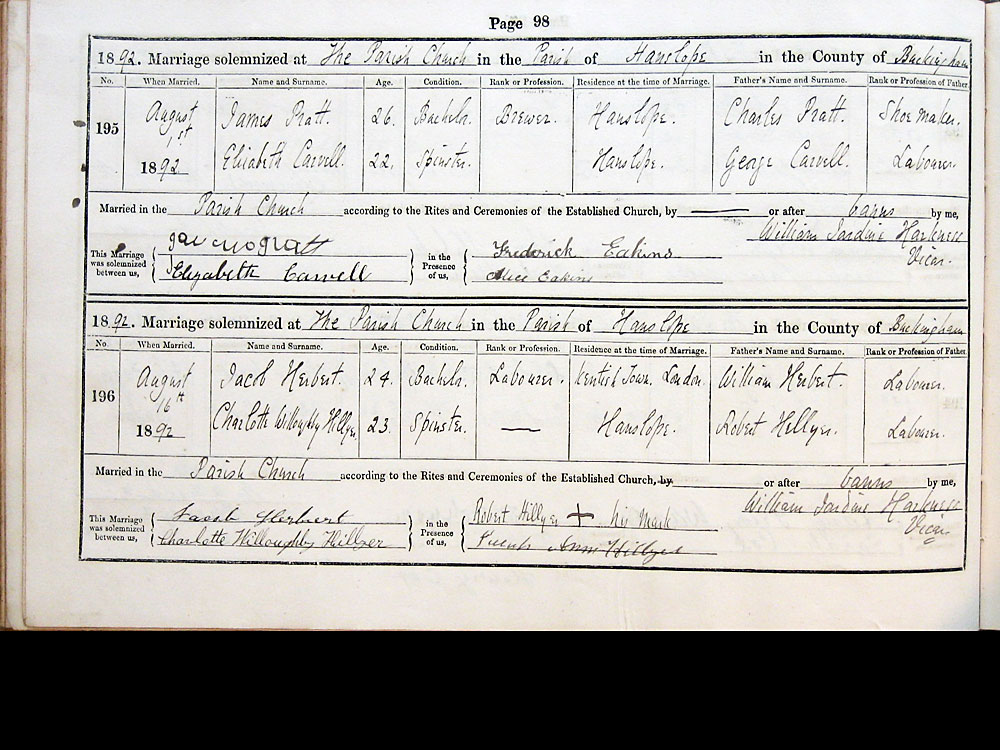 Page 98
1892. Marriage solemnized at The Parish Church in the Parish of Hanslope in the County of Buckingham
No. When Married. Name and Surname. Age. Condition. Rank or Profession. Residence at the time of Marriage. Father's Name and Surname. Rank or Profession of Father
195 August 1st 1892 James Pratt. 26. Bachelr. Brewer. Hanslope. Charles Pratt. Shoe maker.
Elizabeth Carvell. 22. Spinster. Hanslope. George Carvell. Labourer.
Married in the Parish Church according to the Rites and Ceremonies of the Established Church, by — or after banns by me,
William Jardine Harkness
Vicar.
This Marriage was solemnized between us, James Pratt
Elizabeth Carvell
in the Presence of us, Frederick Eakins
Alice Eakins
1892. Marriage solemnized at The Parish Church in the Parish of Hanslope in the County of Buckingham
No. When Married. Name and Surname. Age. Condition. Rank or Profession. Residence at the time of Marriage. Father's Name and Surname. Rank or Profession of Father
196 August 16th 1892 Jacob Herbert. 24. Bachelr. Labourer. Kentish Town. London. William Herbert. Labourer.
Charlotte Willoughby Hillyer. 23. Spinster. — Hanslope. Robert Hillyer. Labourer.
Married in the Parish Church according to the Rites and Ceremonies of the Established Church, by or after banns by me,
William Jardine Harkness
Vicar
This Marriage was solemnized between us, Jacob Herbert
Charlotte Willoughby Hillyer
in the Presence of us, Robert Hillyer + his mark
Ann Hillyer